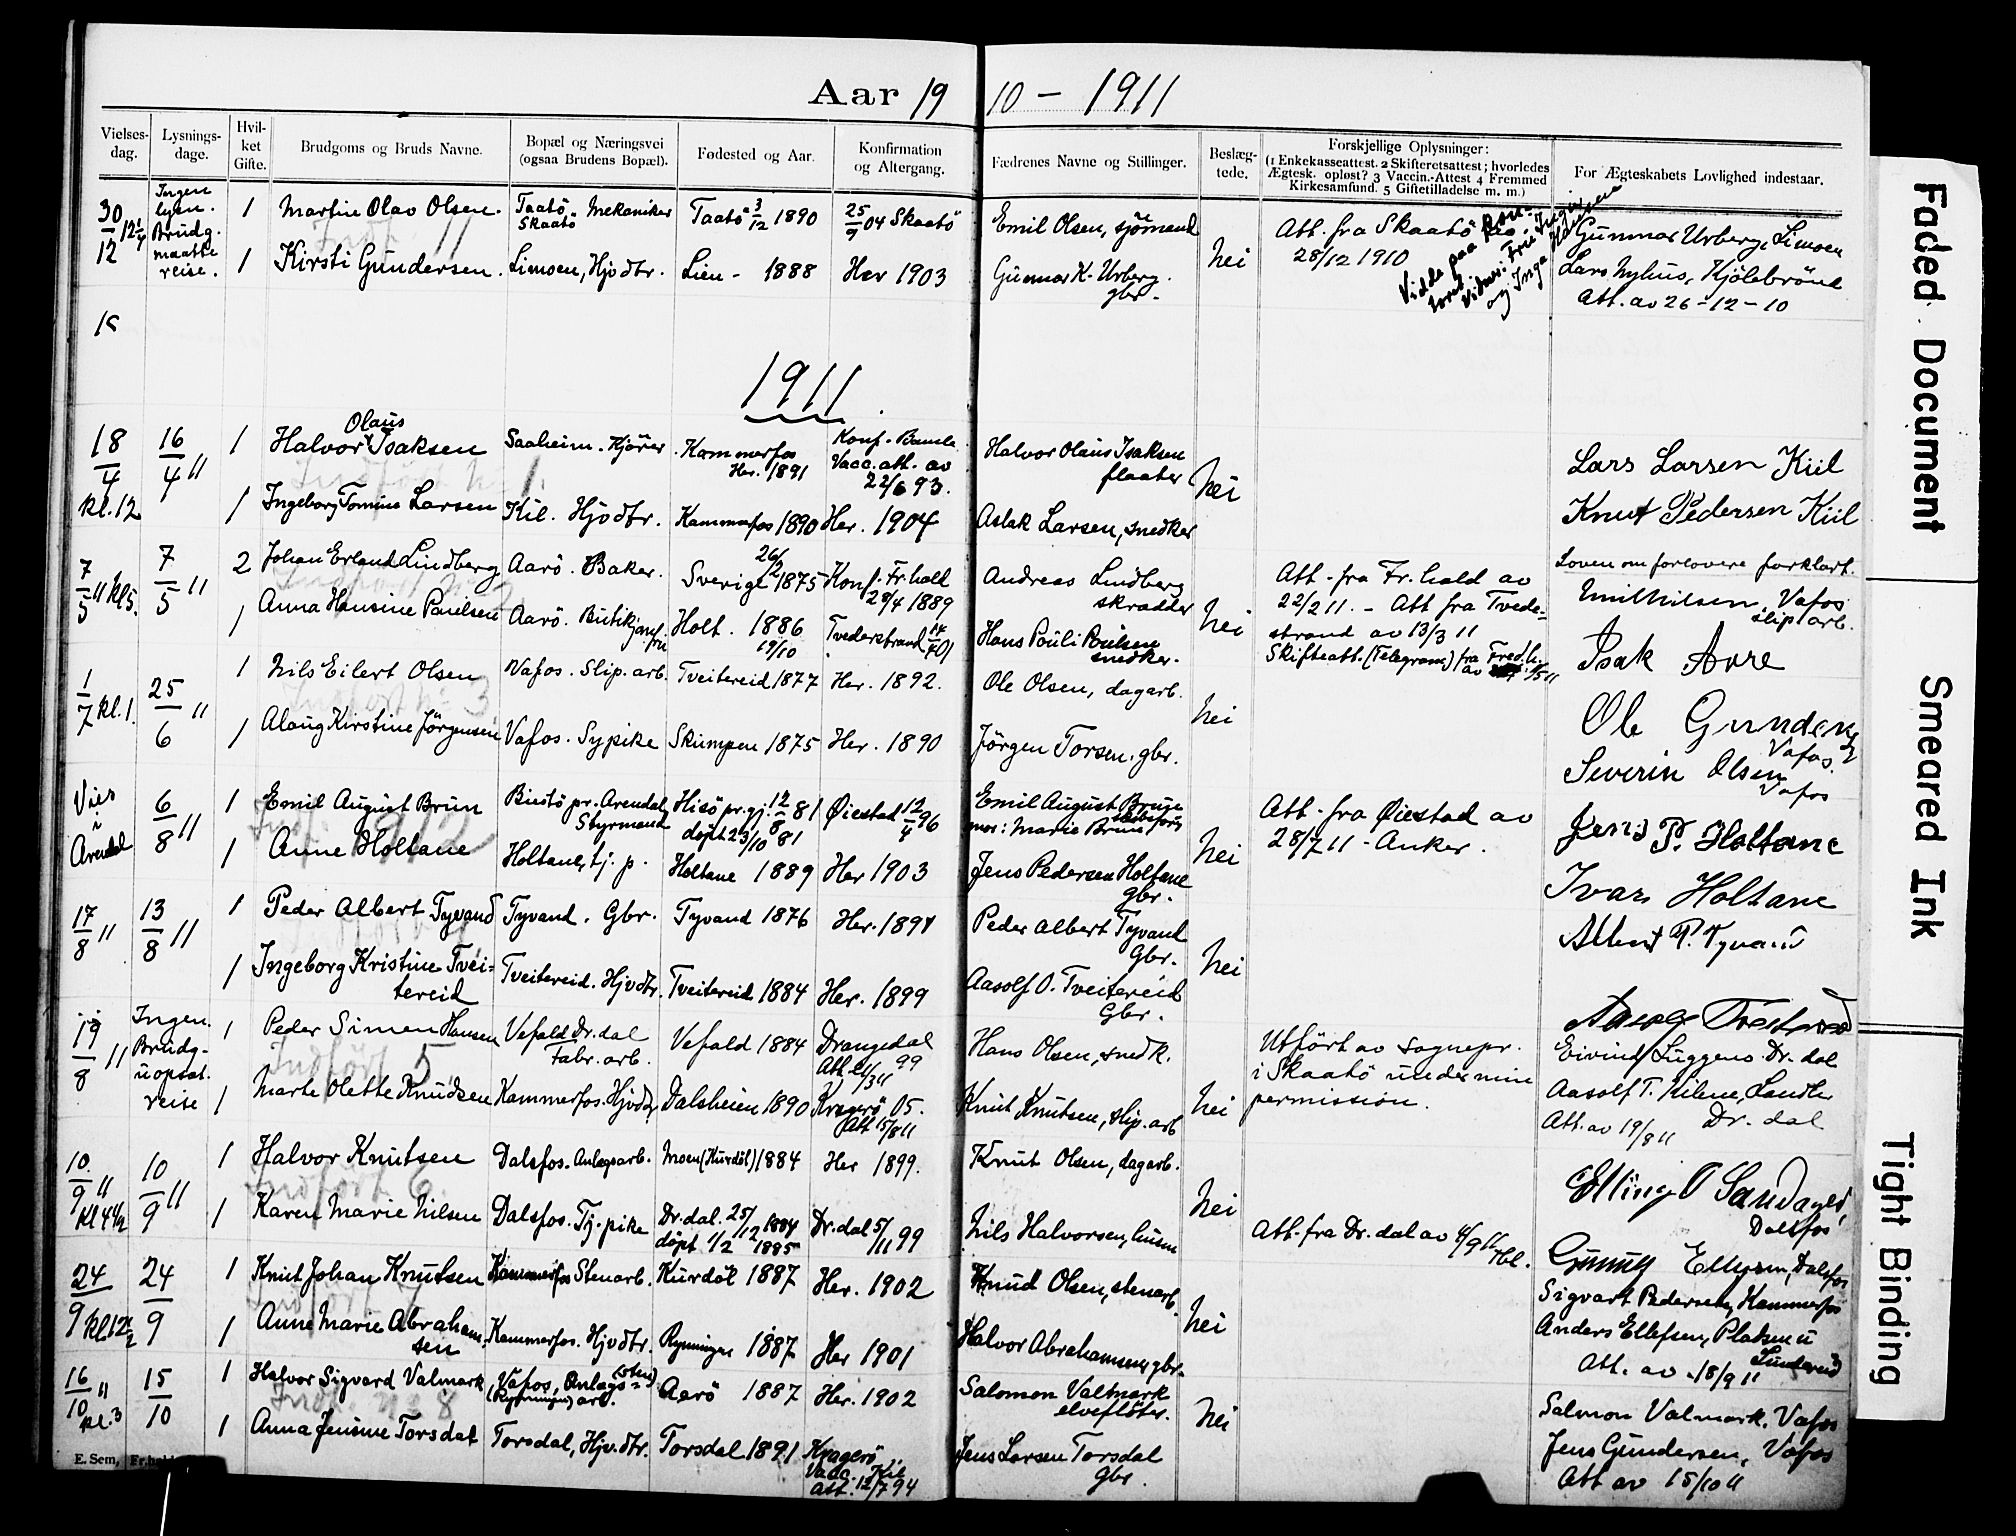 Aar 1910 – 1911
Vielses-dag.
Lysnings-dage.
Hvil-ket Gifte.
Brudgoms og Bruds Navne.
Bopæl og Næringsvei (ogsaa Brudens Bopæl).
Fødested og Aar.
Konfirmation og Altergang.
Fædrenes Navne og Stillinger.
Beslæg-tede.
Forskjellige Oplysninger:
(1 Enkekasseattest. 2 Skifteretsattest; hvorledes
Ægtesk. opløst? 3 Vaccin.-Attest 4 Fremmed
Kirkesamfund. 5 Giftetilladelse m. m.)
For Ægteskabets Lovlighed indestaar.
30/12 12 1/4 Ingen lysn. Brudg. maatte reise.
1 Martin Olav Olsen. Taatö Skaatö Mekaniker Taatö 3/12 1890 25/9 04 Skaatö Emil Olsen, sjömand
1 Kirsti Gundersen. Limoen, Hjvdtr. Lien - 1888 Her 1903 Gunnar K. Urberg. gbr.
nei
Att. fra Skaatö
28/12 1910
Gunnar Urberg, Limoen
Lars Nyhus, Kjölebrönd
Att. av 26-12-10
1911
18/4 kl. 12 16/4 11
1 Halvor Olaus Isaksen Saaheim. Kjörer Kammerfos Her. 1891 Konf. Bamle Vacc. att. av 22/6 93. Halvor Olaus Isaksen flaater
1 Ingeborg Tomine Larsen Kil. Hjvdtr. Kammerfos 1890 Her. 1904 Aslak Larsen, snedker
nei
Lars Larsen Kiil
Knut Pedersen Kiil
7/5 11 kl 5. 7/5 11
2 Johan Erland Lindberg Aarö. Baker. Sverige 26/2 1875 Konf. Fr.hald 28/4 1889 Andreas Lindberg skrædder
1 Anna Hansine Paulsen Aarö. Butikjomfru Holt. 1886 19/10 Tvedestrand 14/4 01 Hans Pouli Poulsen snedker.
nei
Att. fra Fr. hald av
22/2 11. - Att fra Tvede-
strand av 13/3 11
Skifteatt. (Telegram) fra Fred.h. av
Loven om forlovere forklart.
Emil Nilsen, Vafos slip arb.
Isak Aare
1/7 kl. 1. 25/6 11
1 Nils Eilert Olsen Vafos. Slip. arb. Tveitereid 1877 Her. 1892. Ole Olsen, dagarb.
1 Alaug Kirstine Jörgensen Vafos. Sypike Skumpen 1875 Her. 1890 Jörgen Torsen. gbr.
nei
Ole Gundersen Vafos.
Severin Olsen Vafos
Vies i Arendal 6/8 11
1 Emil August Brun Buøtö pr. Arendal, Styrmand Hisö pr.gj. 12/8 81 döpt 23/10 81 Øiestad 12/4 96 Emil August Brun
mor: Marie Brun
1 Anne Holtane Holtane, tj. p. Holtane 1889 Her 1903 Jens Pedersen Holtane gbr.
nei
Att. fra Øiestad av
28/7 11 - Anker.
Jens P. Holtane
Ivar Holtane
17/8 11 13/8 11
1 Peder Albert Tyvand Tyvand. Gbr. Tyvand 1876 Her. 1891 Peder Albert Tyvand Gbr.
1 Ingeborg Kristine Tvei-tereid Tveitereid. Hjvdtr. Tveitereid 1884 Her. 1899 Aasolf O. Tveitereid Gbr.
nei
Albert P. Tyvand
Aasolf Tveitereid
19/8 11 Ingen. Brudg. uopsat. reise
1 Peder Simen Hansen Vefald Dr. dal Fabr. arb. Vefald 1884 Drangedal 99 Hans Olsen, snedk.
1 Marte Olette Knudsen Kammerfos. Hjvdtr. Dalsheien 1890 Kragerö 05. Att 15/8 11 Knut Knutsen, slip. arb
nei
Utfört av sognepr.
i Skaatö under min
permission.
Eivind Luggens Dr. dal
Aasolf T. Kilene, Landler
Att. av 19/8 11 Dr. dal
10/9 11 Kl 4 1/2 10/9 11
1 Halvor Knutsen Dalsfos. Anlægsarb. Moen (Kurdöl) 1884 Her 1899. Knut Olsen, dagarb.
1 Karen Marie Nilsen Dalsfos. Tj. pike Dr. dal. 25/12 1884 döpt 1/2 1885 Dr. dal 5/11 99 Nils Halvorsen, husm
nei
Att. fra Dr. dal av 4/9 11
Elling O Sandagld, Dalsfos
Gunuf Ellefsen, Dalsfos
24/9 kl 12 1/2 24/9
1 Knut Johan Knutsen Kammerfos Stenarb. Kurdöl 1887 Her. 1902 Knud Olsen, stenarb.
1 Anne Marie Abraham-sen Kammerfos. Hjvdtr. Rypningen 1887 Her 1901 Halvor Abrahamsen, gbr.
nei
Sigvart Pedersen, Kammerfos
Anders Ellefsen, Pladsen u Lundereid
Att. av 18/9 11
16/10 11 kl. 3 15/10
1 Halvor Sigvard Valmark Vafos, Anlægs- (sten) arb. (Rypningen) Aarö 1887 Her. 1902 Salomon Valmark elveflöter.
1 Anna Jensine Torsdal Torsdal, Hjv. dtr. Torsdal 1891 Kragerö. Vacc. Kil Att. 12/7 94 Jens Larsen Torsdal Gbr.
nei
Salmon Valmark. Vafos
Jens Gundersen, Vafos
Att av 15/10 11
E. Sem, Fr.hald
Faded Document
Smeared Ink
Tight Binding